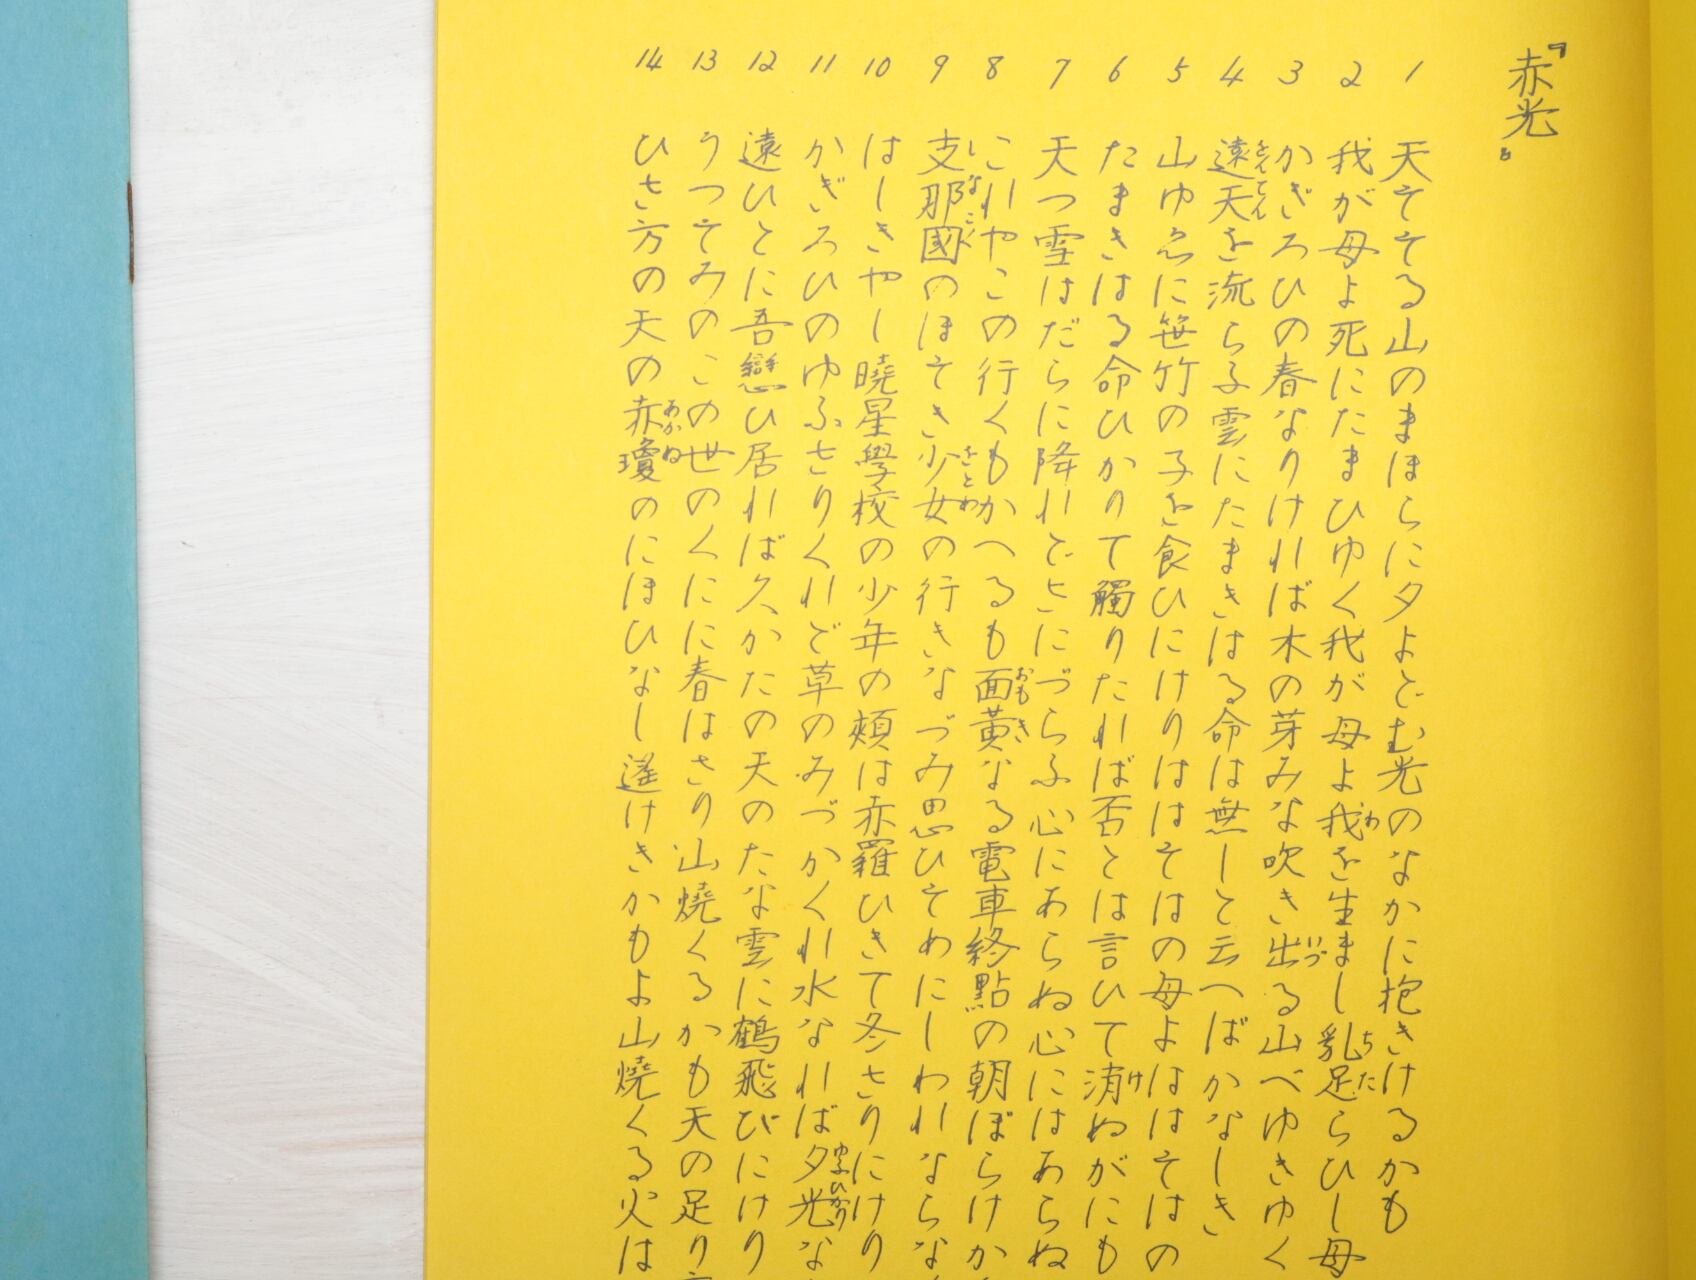 『赤光』
1 天そそる山のまほらに夕よどむ光のなかに抱きけるかも
2 我が母よ死にたまひゆく我が母よ我を生まし乳足らひし母
わ
ちた
3 かぎろひの春なりければ木の芽みな吹き出る山べゆきゆく
いづ
4 遠天を流らふ雲にたまきはる命は無しと云へばかなしき
をんてん
5 山ゆゑに笹竹の子を食ひにけりははそはの母よははそはの
6 たまきはる命ひかりて觸りたれば否とは言ひて消ぬがにも
け
7 天つ雪はだらに降れどさにづらふ心にあらぬ心にはあらぬ
8 これやこの行くもかへるも面黄なる電車終點の朝ぼらけか
おもき
9 支那國のほそき少女の行きなづみ思ひそめにしわれならな
しなこく
をとめ
10 はしきやし曉星學校の少年の頬は赤羅ひきて冬さりにけり
11 かぎろひのゆふさりくれど草のみづかくれ水なれば夕光な
ゆふひかり
12 遠ひとに吾戀ひ居れば久かたの天のたな雲に鶴飛びにけり
13 うつそみのこの世のくにに春はさり山燒くるかも天の足り
14 ひさ方の天の赤瓊のにほひなし遙けきかもよ山燒くる火は
あかぬ